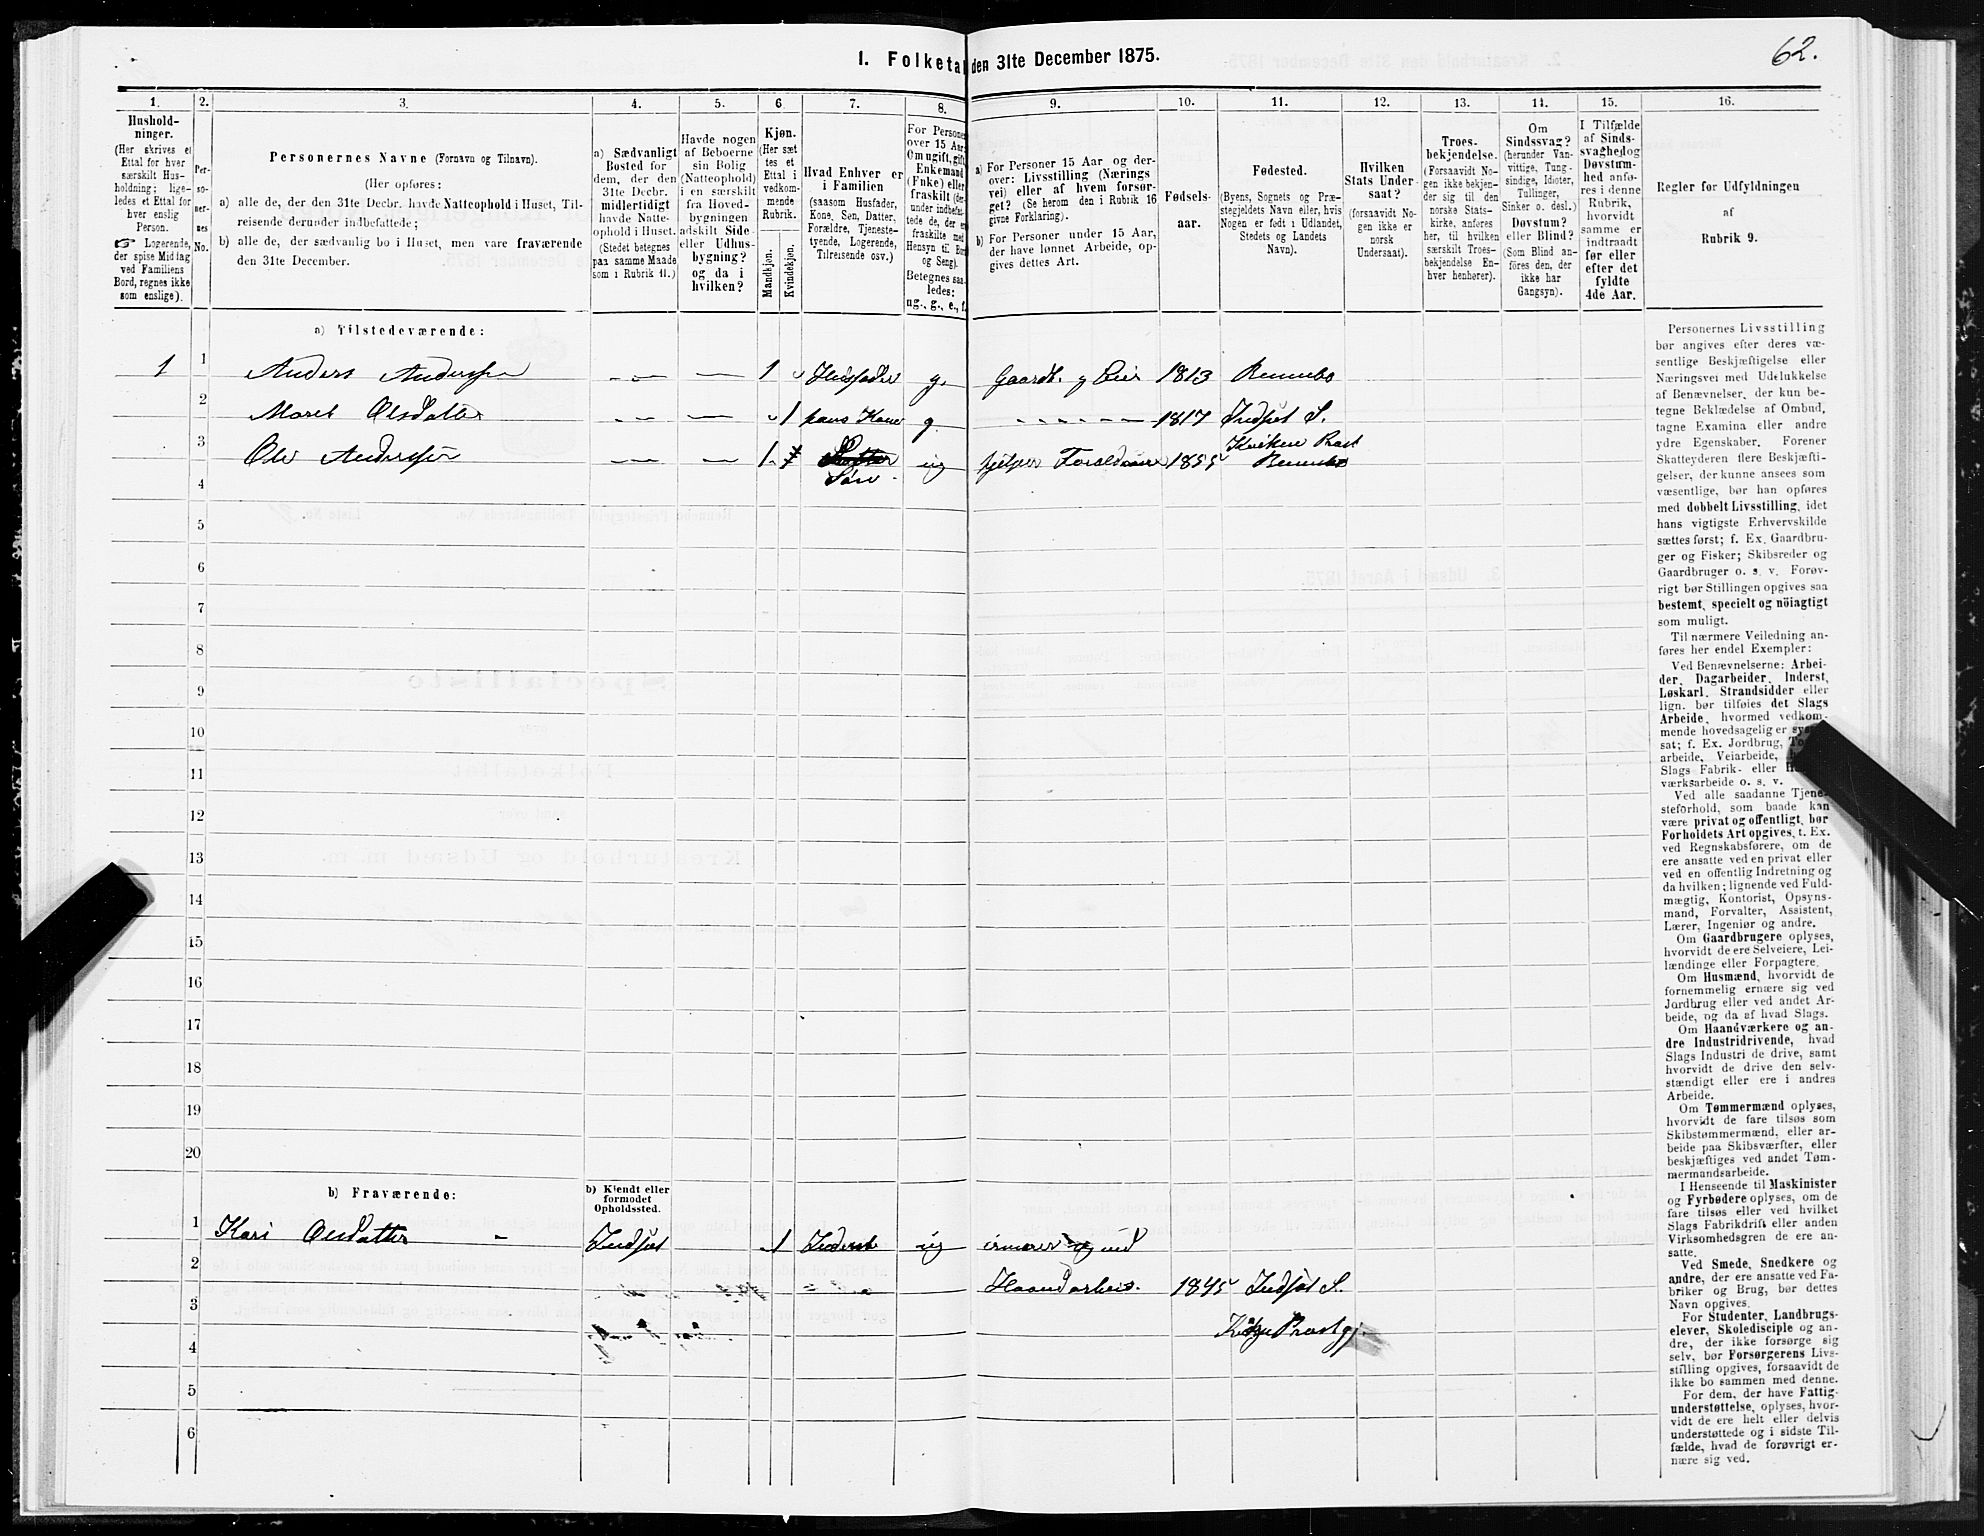 62.
1. Folketal den 31te December 1875.
1. 2. 3. 4. 5. 6. 7. 8. 9. 10. 11. 12. 13. 14. 15. 16.
Hushold-
ninger.
(Her skrives et
Ettal for hver
særskilt Hus-
holdning; lige-
ledes et Ettal for
hver enslig
Person.
☞ Logerende,
der spise Middag
ved Familiens
Bord, regnes ikke
som enslige).
Per-
so-
ner-
nes
No.
Personernes Navne (Fornavn og Tilnavn).
(Her opføres:
a) alle de, der den 31te Decbr. havde Natteophold i Huset, Til-
reisende derunder indbefattede;
b) alle de, der sædvanlig bo i Huset, men vare fraværende
den 31te December.
a) Sædvanligt
Bosted for
dem, der den
31te Decbr.
midlertidigt
havde Natte-
ophold i Huset.
(Stedet betegnes
paa samme Maade
som i Rubrik 11.)
Havde nogen
af Beboerne
sin Bolig
(Natteophold)
i en særskilt
fra Hoved-
bygningen
adskilt Side-
eller Udhus-
bygning?
og da i
hvilken?
Kjøn.
(Her sæt-
tes et
Ettal i
vedkom-
mende
Rubrik.
Mandkjøn.
Kvindekjøn.
Hvad Enhver er
i Familien
(saasom Husfader,
Kone, Søn, Datter,
Forældre, Tjeneste-
tyende, Logerende,
Tilreisende osv.)
For Personer
over 15 Aar:
Om ugift, gift,
Enkemand
(Enke) eller
fraskilt (der-
under indbefat-
tede de, der er
fraskilte med
Hensyn til Bord
og Seng).
Betegnes saa-
ledes:
ug., g., e., f.
a) For Personer 15 Aar og der-
over: Livsstilling (Nærings-
vei) eller af hvem forsør-
get? (Se herom den i Rubrik 16
givne Forklaring).
b) For Personer under 15 Aar,
der have lønnet Arbeide, op-
gives dettes Art.
Fødsels-
aar.
Fødested.
(Byens, Sognets og Præ-
stegjeldets Navn eller, hvis
Nogen er født i Udlandet,
Stedets og Landets
Navn).
Hvilken
Stats Under-
saat?
(forsaavidt No-
gen ikke er
norsk
Undersaat).
Troes-
bekjendelse.
(Forsaavidt No-
gen ikke bekjen-
der sig til den
norske Stats-
kirke, anføres
her, til hvilken
særskilt Troes-
bekjendelse En-
hver henhører).
Om
Sindssvag?
(herunder Van-
vittige, Tung-
sindige, Idioter,
Tullinger,
Sinker o. desl.)
Døvstum?
eller Blind?
(Som Blind an-
føres den, der
ikke har
Gangsyn).
I Tilfælde
af Sinds-
svaghed og
Døvstum-
hed anfø-
res i denne
Rubrik,
hvorvidt
samme er
indtraadt
før eller
efter det
fyldte
4de Aar.
Regler for Udfyldningen
af
Rubrik 9.
a) Tilstedeværende:
1 1 Anders Andersen 1 Husfader g. Gaardb. og Eier 1813 Rennebo
2 Maret Olsdatter 1 hans Kone g. 1817 Indset S.
Kvikne Præst
3 Ole Andersen 1 ug hjelper Forældrene 1855 Rennebo
4 Søn
5
6
7
8
9
10
11
12
13
14
15
16
17
18
19
20
b) Fraværende:
b) Kjendt eller
formodet
Opholdssted.
1 Kari Olsdatter Indset 1 Inderst ug ernærer sig ved
2 Haandarbeid. 1845 Indset S.
3
4 Præstgj.
5
6
Personernes Livsstilling
bør angives efter deres væ-
sentlige Beskjæftigelse eller
Næringsvei med Udelukkelse
af Benævnelser, der kun be-
tegne Beklædelse af Ombud,
tagne Examina eller andre
ydre Egenskaber. Forener
Skatteyderen flere Beskjæfti-
gelser, der kunne ansees som
væsentlige, bør han opføres
med dobbelt Livsstilling, idet
hans vigtigste Erhvervskilde
sættes først; f. Ex. Gaardbru-
ger og Fisker; Skibsreder og
Gaardbruger o. s. v. Forøv-
rigt bør Stillingen opgives saa
bestemt, specielt og nöiagtigt
som muligt.
Til nærmere Veiledning an-
føres her endel Exempler:
Ved Benævnelserne: Arbei-
der, Dagarbeider, Inderst,
Løskarl, Strandsidder eller
lign. bør tilføies det Slags
Arbeide, hvormed vedkom-
mende hovedsagelig er
sat; f. Ex. Jordbrug,
arbeide, Veiarbeide,
Slags Fabrik- eller
værksarbeide o. s. v.
Ved alle saadanne Tjene-
steforhold, som baade kan
være privat og offentligt, bør
Forholdets Art opgives, t. Ex.
ved Regnskabsførere, om de
ere ansatte ved en privat eller
ved en offentlig Indretning og
da hvilken; lignende ved Fuld-
mægtig, Kontorist, Opsyns-
mand, Forvalter, Assistent,
Lærer, Ingeniør og andre.
Om Gaardbrugere oplyses,
hvorvidt de ere Selveiere, Lei-
lændinge eller Forpagtere.
Om Husmænd, hvorvidt de
fornemmelig ernære sig ved
Jordbrug eller ved andet Ar-
beide, og da af hvad Slags.
Om Haandværkere og an-
dre Industridrivende, hvad
Slags Industri de drive, samt
hvorvidt de drive den selv-
stændigt eller ere i andres
Arbeide.
Om Tømmermænd oplyses,
hvorvidt de fare tilsøs som
Skibstømmermænd, eller ar-
beide paa Skibsværfter, eller
beskjæftiges ved andet Tøm-
mermandsarbeide.
I Henseende til Maskinister
og Fyrbødere oplyses, om de
fare tilsøs eller ved hvilket
Slags Fabrikdrift eller anden
Virksomhedsgren de ere an-
satte.
Ved Smede, Snedkere og
andre, der ere ansatte ved Fa-
briker og Brug, bør dettes
Navn opgives.
For Studenter, Landbrugs-
elever, Skoledisciple og an-
dre, der ikke forsørge sig
selv, bør Forsørgerens Livs-
stilling opgives, forsaavidt de
ikke bo sammen med denne.
For dem, der have Fattig-
understøttelse, oplyses, hvor-
vidt de ere helt eller delvis
understøttede og i sidste Til-
fælde, hvad de forøvrigt er-
nære sig ved.